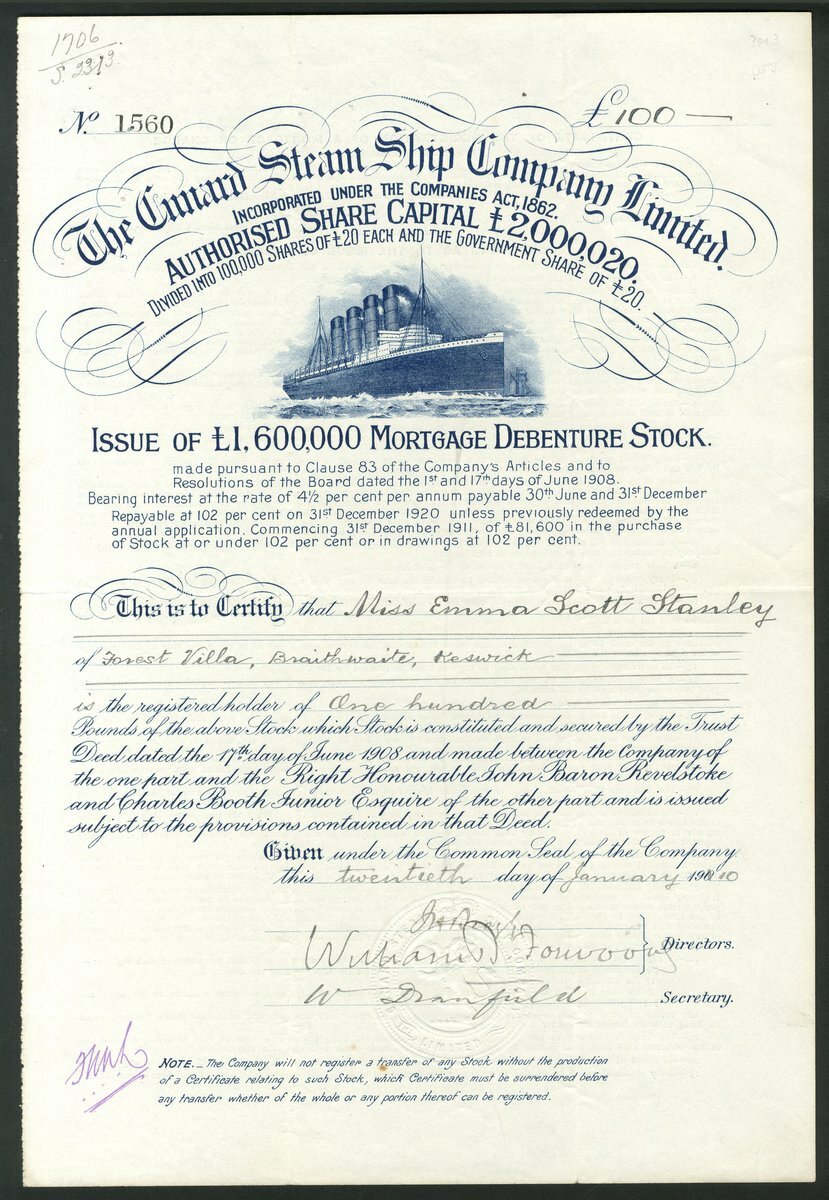 1706
S. 2313.
No. 1560
£100 —
The Cunard Steam Ship Company Limited.
INCORPORATED UNDER THE COMPANIES ACT, 1862.
AUTHORISED SHARE CAPITAL £2,000,020.
DIVIDED INTO 100,000 SHARES OF £20 EACH AND THE GOVERNMENT SHARE OF £20.
ISSUE OF £1,600,000 MORTGAGE DEBENTURE STOCK.
made pursuant to Clause 83 of the Company's Articles and to
Resolutions of the Board dated the 1st and 17th days of June 1908.
Bearing interest at the rate of 4½ per cent per annum payable 30th June and 31st December
Repayable at 102 per cent on 31st December 1920 unless previously redeemed by the
annual application, Commencing 31st December 1911, of £81,600 in the purchase
of Stock at or under 102 per cent or in drawings at 102 per cent.
This is to Certify that Miss Emma Scott Stanley
of Forest Villa, Braithwaite, Keswick
is the registered holder of One hundred
Pounds of the above Stock which Stock is constituted and secured by the Trust
Deed dated the 17th day of June 1908 and made between the Company of
the one part and the Right Honourable John Baron Revelstoke
and Charles Booth Junior Esquire of the other part and is issued
subject to the provisions contained in that Deed.
Given under the Common Seal of the Company
this twentieth day of January 1910
William B Forwood
Directors.
W Dranfield Secretary.
NOTE._ The Company will not register a transfer of any Stock without the production
of a Certificate relating to such Stock, which Certificate must be surrendered before
any transfer whether of the whole or any portion thereof can be registered.